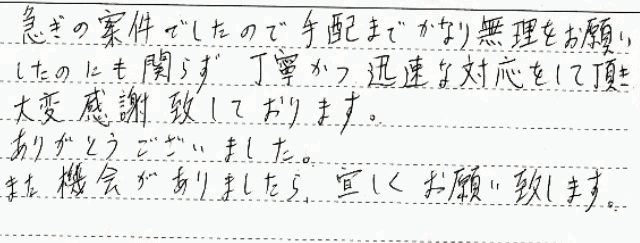 急ぎの案件でしたので手配までかなり無理をお願い
したのにも関らず 丁寧かつ迅速な対応をして頂き
大変感謝致しております。
ありがとうございました。
また機会がありましたら、宜しくお願い致します。